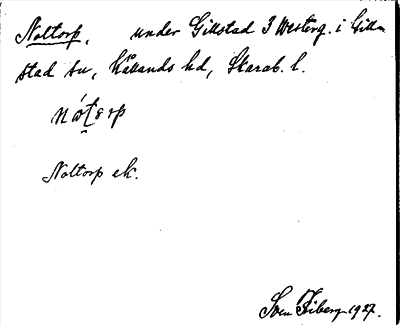 Noltorp, under Gillstad 3 Westerg. i Gill-
stad sn, Kållands hd, Skarab. l.
Noltorp ek.
Sven Fiberg 1927.